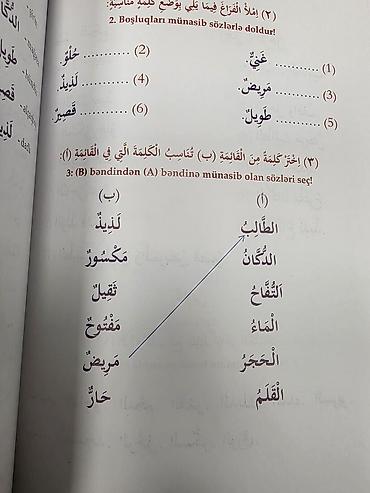 (٢) اِمْلَأِ الْفَرَاغَ فِيمَا يَلِي بِوَضْعِ كَلِمَةٍ مُنَاسِبَةٍ:
2. Boşluqları münasib sözlərlə doldur!
(1) ........... غَنِيٌّ. (2) ........... حُلْوٌ.
(3) ........... مَرِيضٌ. (4) ........... لَذِيذٌ.
(5) ........... طَوِيلٌ. (6) ........... قَصِيرٌ.
(٣) اِخْتَرْ كَلِمَةً مِنَ الْقَائِمَةِ (ب) تُنَاسِبُ الْكَلِمَةَ الَّتِي فِي الْقَائِمَةِ (أ):
3: (B) bəndindən (A) bəndinə münasib olan sözləri seç!
(أ) (ب)
الطَّالِبُ لَذِيذٌ
الدُّكَّانُ مَكْسُورٌ
اَلتُّفَّاحُ ثَقِيلٌ
الْمَاءُ مَفْتُوحٌ
الْحَجَرُ مَرِيضٌ
الْقَلَمُ حَارٌّ